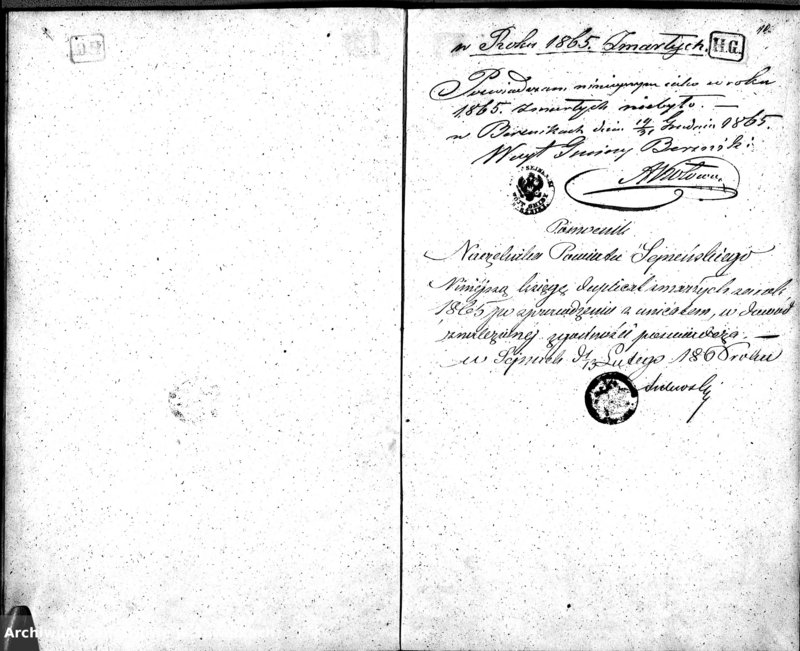 w Roku 1865. Zmarłych.
H.G.
Poswiadczam niniejszym iako w roku
1865. zmarłych niebyło. —
w Bereznikach dnia 19/31 Grudnia 1865.
Woyt Gminy Berzniki
Pomocnik
Naczelnika Powiatu Sejneńskiego
Niniejszą księgę duplicat zmarłych za rok
1865 po sprawdzeniu z unicatem, w dowód
znalezionej zgodności poswiadcza. —
w Sejnach d. 1/13 Lutego 1866 roku
Archiw